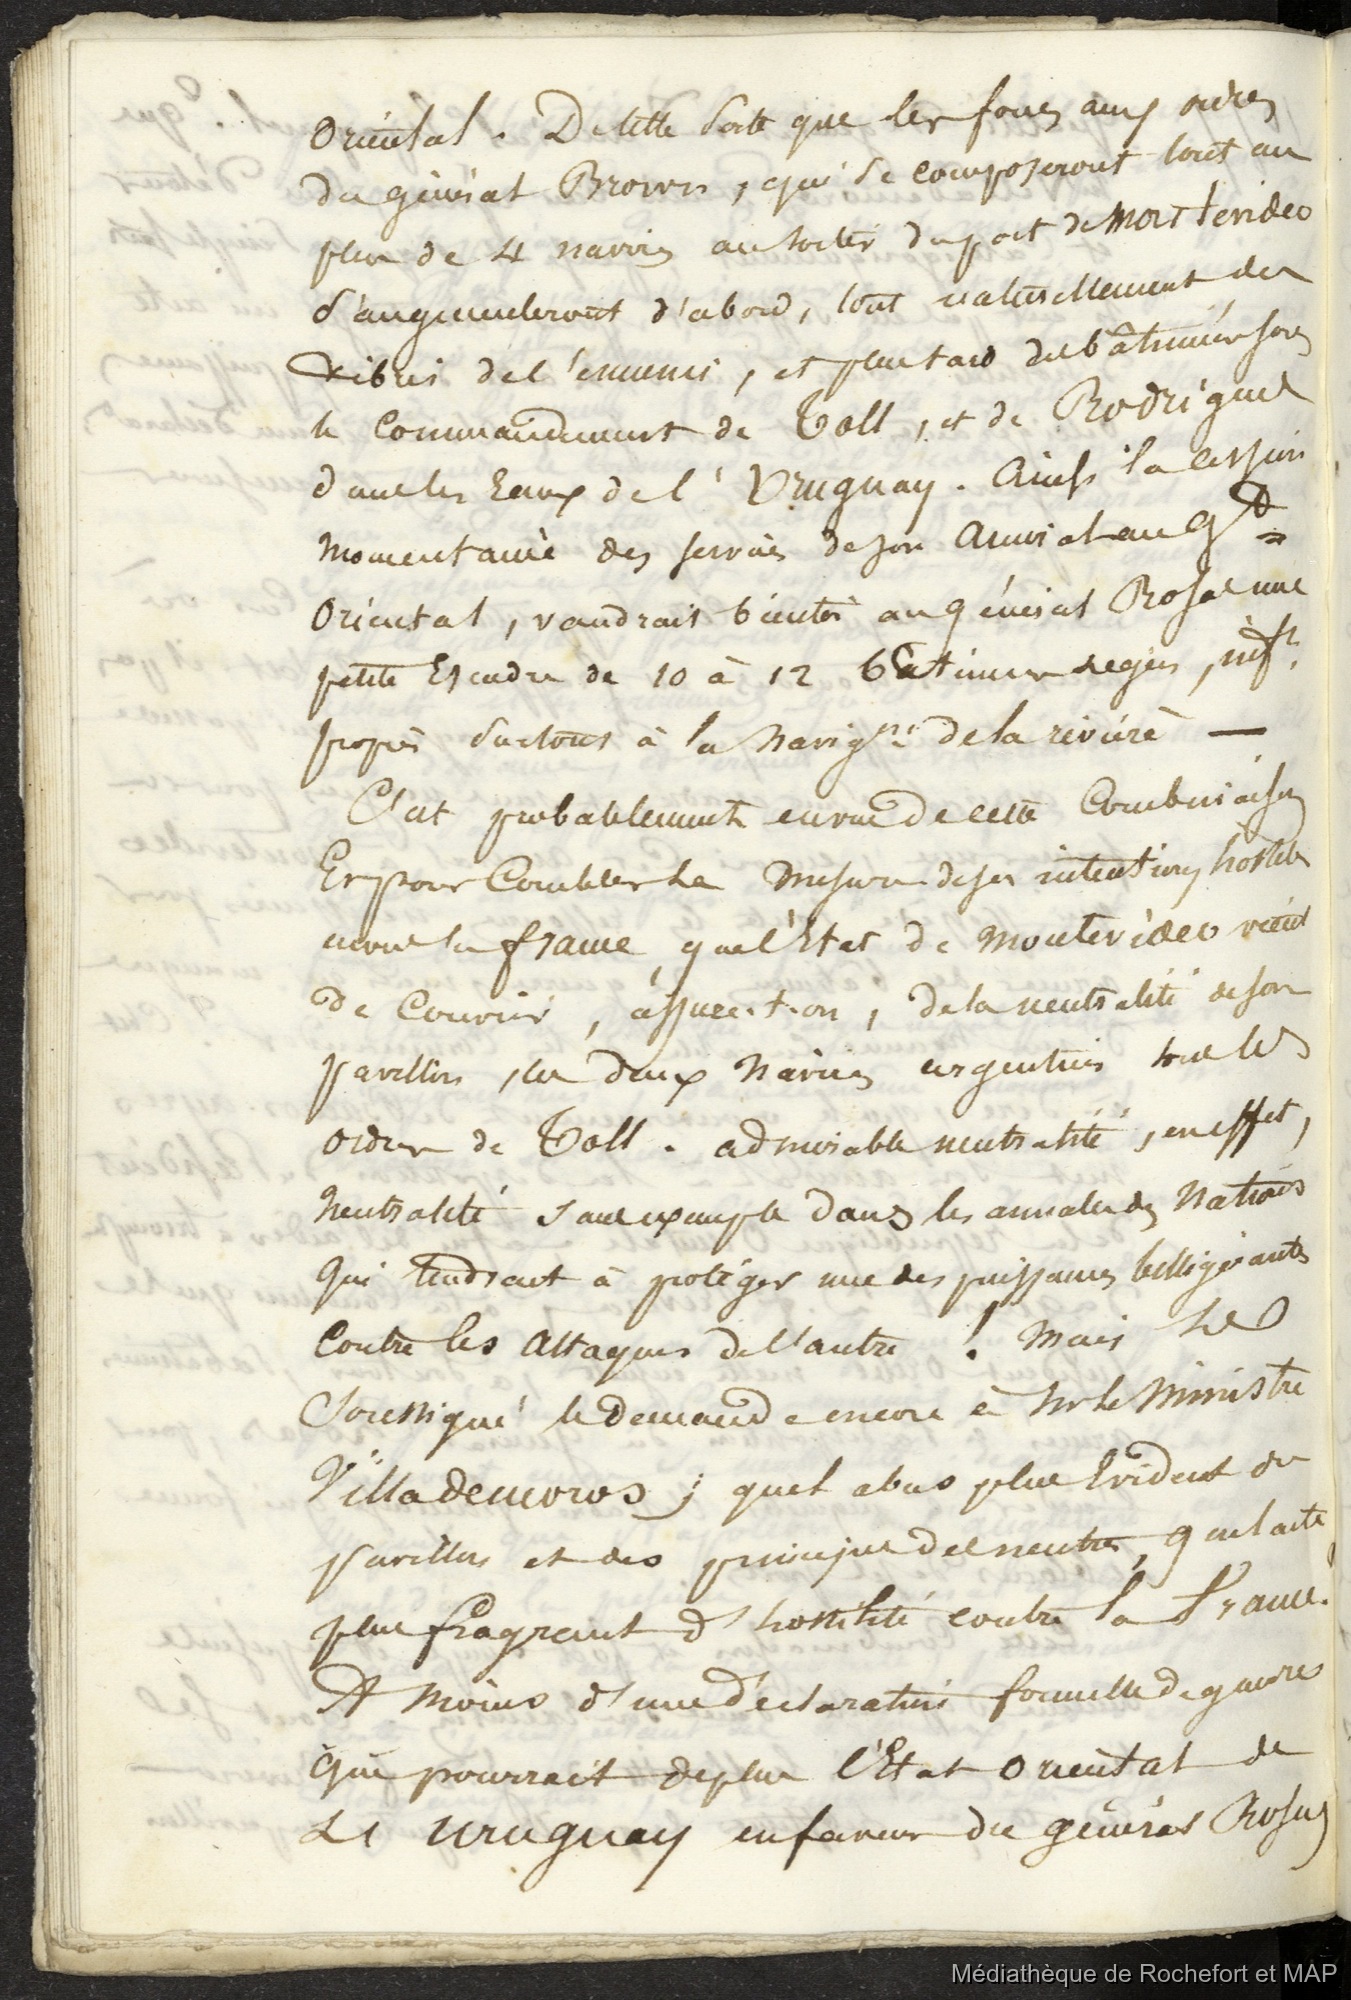 Oriental. De telle sorte que les forces aux ordres
du général Brown, qui se composeront tout au
plus de 4 navires au sortir du port de Montevideo
s'augmenteront d'abord, tout naturellement des
débris de l'ennemi, et plus tard des bâtimens sous
le Commandement de Toll, et de Rodriguez
dans les Eaux de l'Uruguay. Ainsi la cession
momentanée des services de son amiral au Gt
Oriental, vaudrait bientôt au général Rosas une
petite Escadre de 10 à 12 bâtimens legers,
propres surtout à la Navigon de la rivière —
C'est probablement en vue de cette Combinaison
Et pour Combler la mesure de ses intentions hostiles
envers la france, que l'Etat de Montevideo vient
de Couvrir, assure-t-on, de la neutralité de son
pavillon, les deux Navires argentins sous les
ordres de Toll. admirable neutralité, en effet,
Neutralité sans exemple dans les annales des Nations
qui tendrait à protéger une des puissances belligérantes
Contre les Attaques de l'autre ! Mais le
Soussigné le demande encore à Mr le Ministre
Villademoros; quel abus plus Evident du
pavillon et des principes des neutres, quel acte
plus flagrant d'hostilité contre la France.
A moins d'une déclaration formelle de guerre
que pourrait de plus l'Etat Oriental de
L'Uruguay en faveur du général Rosas
Médiathèque de Rochefort et MAP